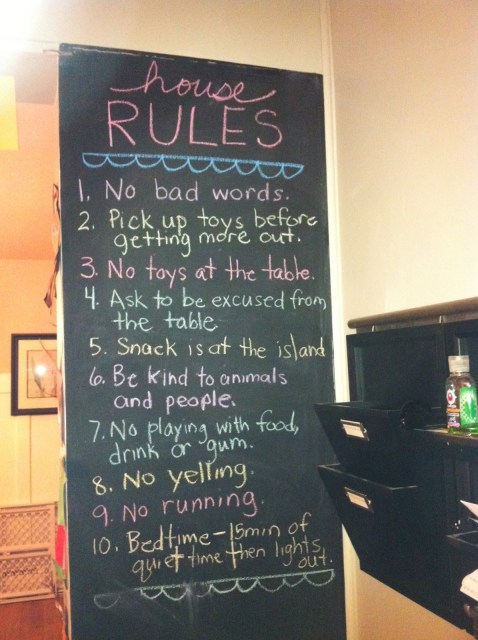 house
RULES
1. No bad words.
2. Pick up toys before
getting more out.
3. No toys at the table.
4. Ask to be excused from
the table
5. Snack is at the island
6. Be kind to animals
and people.
7. No playing with food,
drink or gum.
8. No yelling.
9. No running.
10. Bedtime - 15min of
quiet time then lights
out.